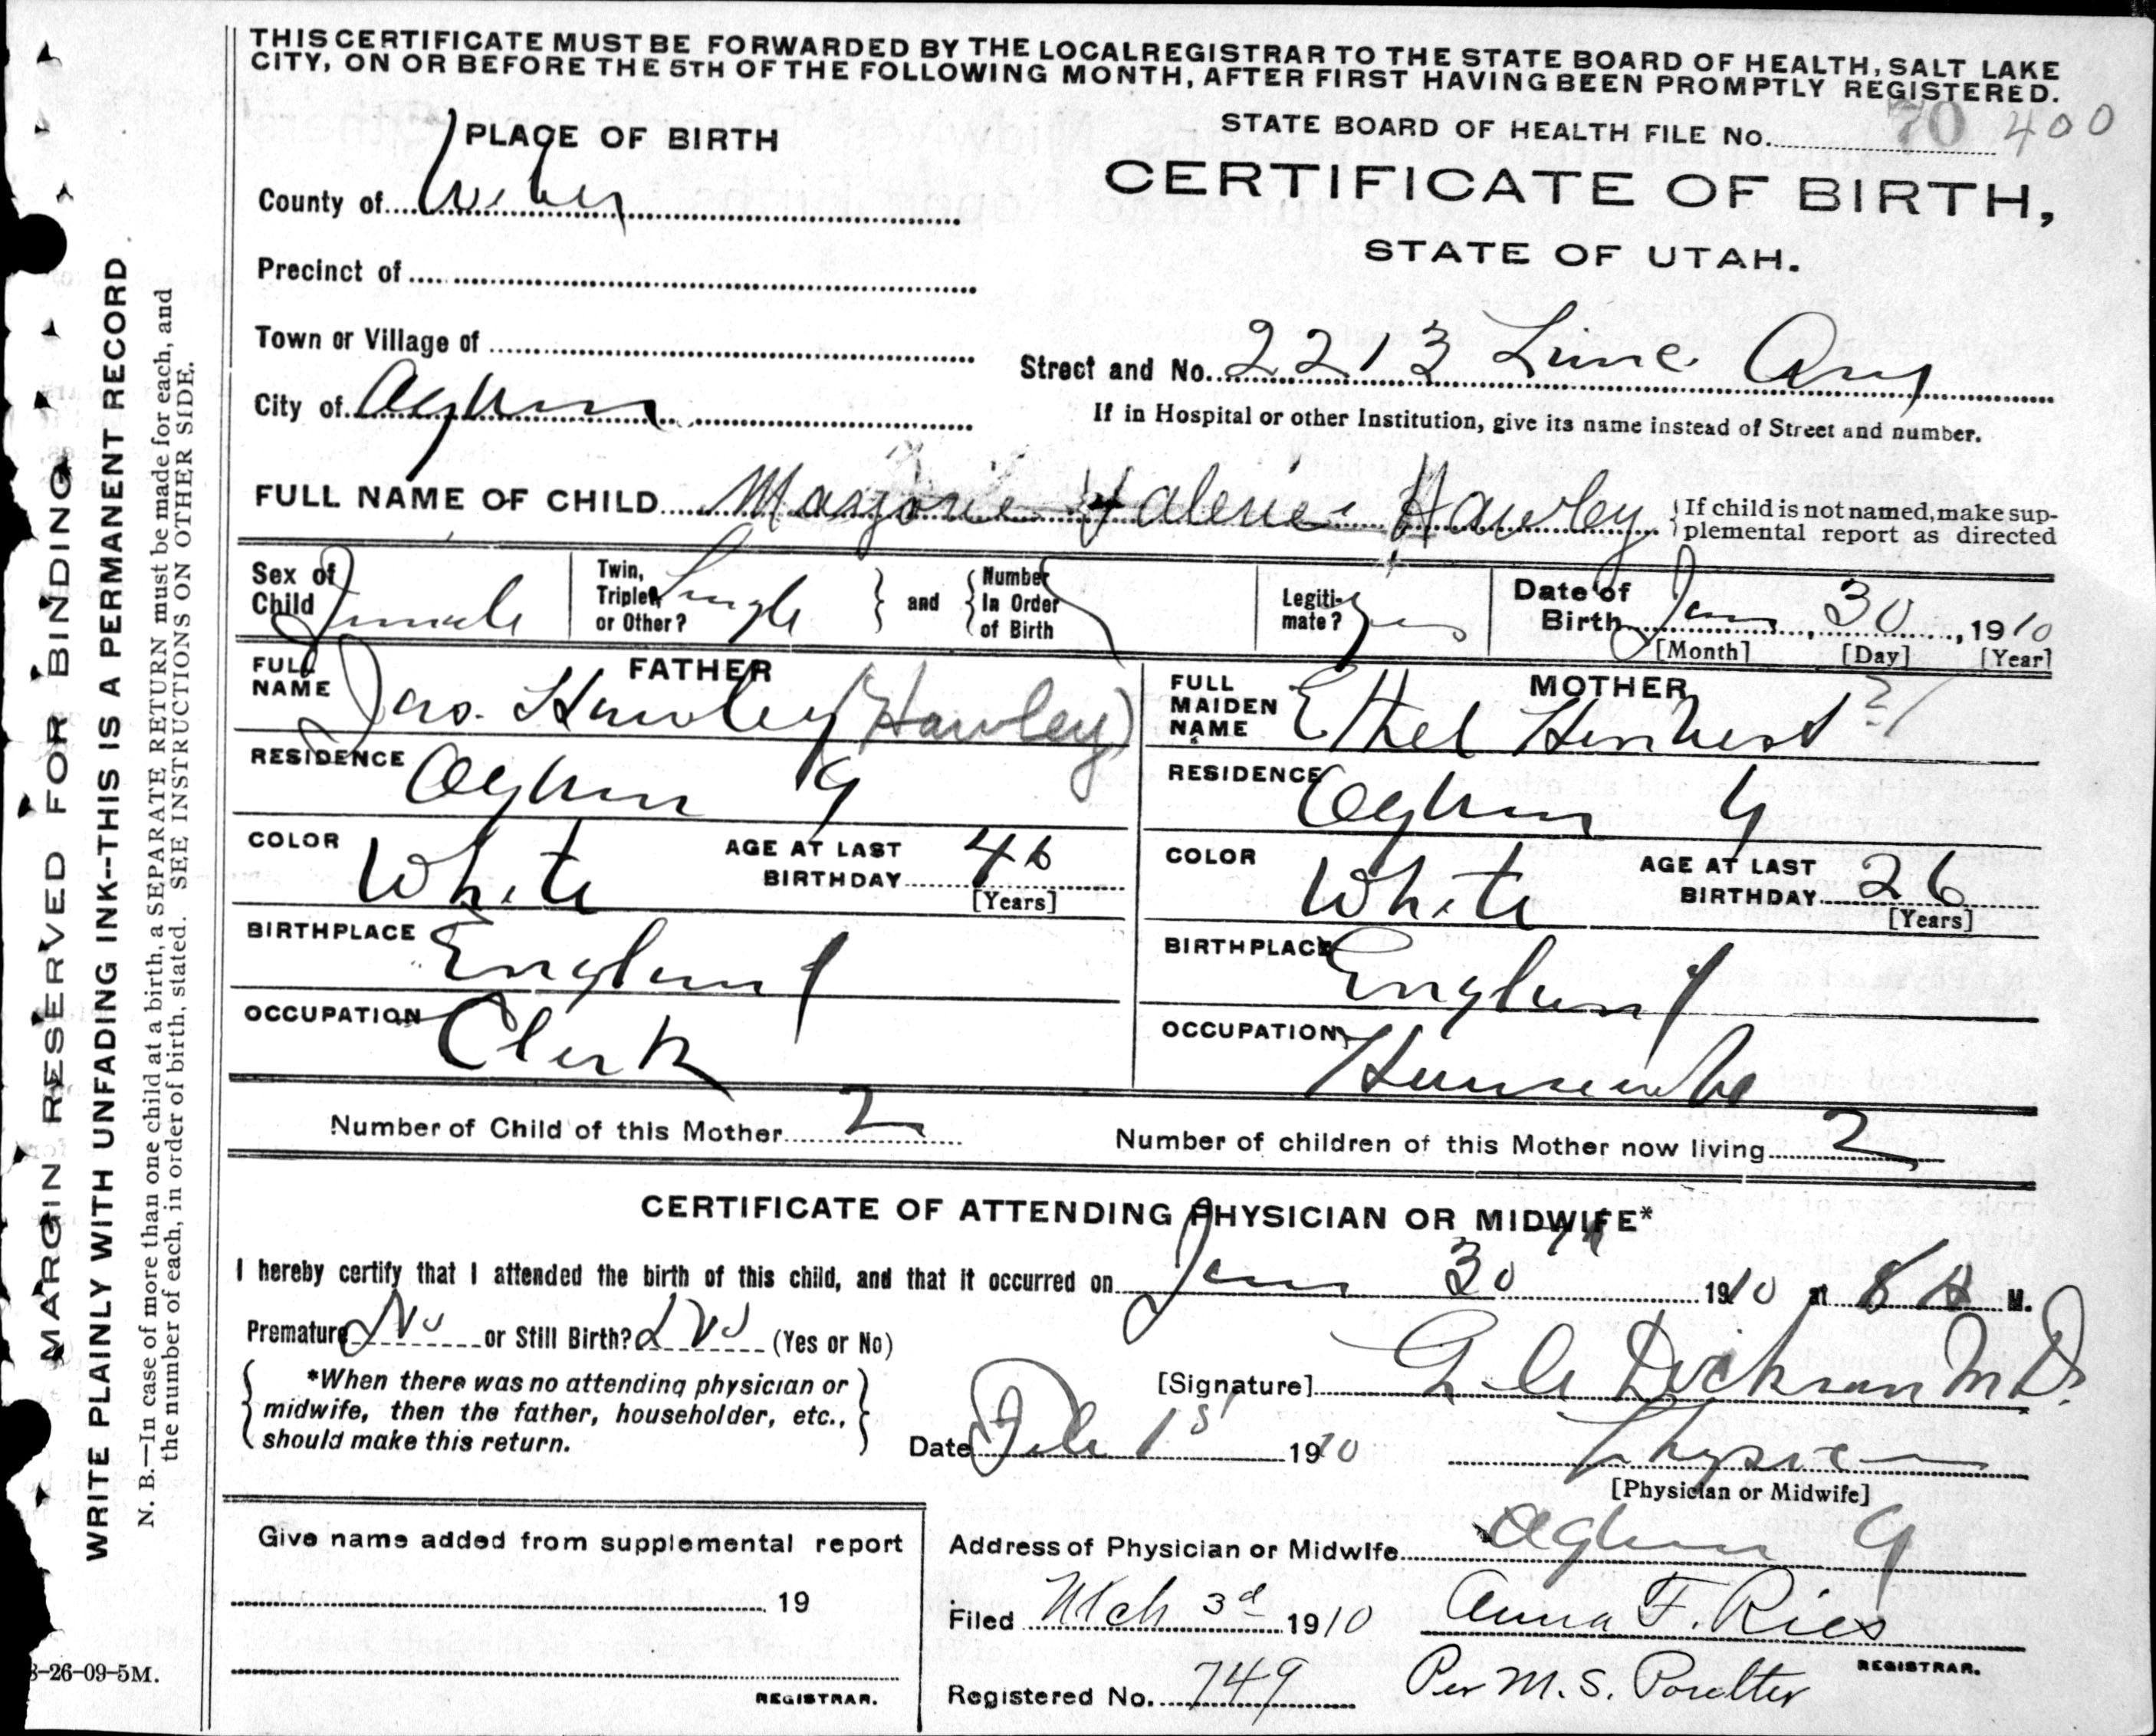 THIS CERTIFICATE MUST BE FORWARDED BY THE LOCAL REGISTRAR TO THE STATE BOARD OF HEALTH, SALT LAKE
CITY, ON OR BEFORE THE 5TH OF THE FOLLOWING MONTH, AFTER FIRST HAVING BEEN PROMPTLY REGISTERED.
PLACE OF BIRTH
STATE BOARD OF HEALTH FILE No. 70 400
County of Weber
CERTIFICATE OF BIRTH,
STATE OF UTAH.
Precinct of
Town or Village of
Street and No. 2213 Ave
City of Ogden
If in Hospital or other Institution, give its name instead of Street and number.
FULL NAME OF CHILD Marjorie Valerie Hawley
If child is not named, make sup-
plemental report as directed
Sex of Child Female
Twin, Triplet, or Other? Single
and
Number In Order of Birth
Legiti-mate? Yes
Date of Birth Jan 30, 1910
[Month] [Day] [Year]
FATHER
FULL NAME Jas. Hawley (Hawley)
MOTHER
FULL MAIDEN NAME Ethel
RESIDENCE Ogden
RESIDENCE Ogden
COLOR White
AGE AT LAST BIRTHDAY 46
[Years]
COLOR White
AGE AT LAST BIRTHDAY 26
[Years]
BIRTHPLACE England
BIRTHPLACE England
OCCUPATION Clerk
OCCUPATION Housewife
Number of Child of this Mother 2
Number of children of this Mother now living 2
CERTIFICATE OF ATTENDING PHYSICIAN OR MIDWIFE*
I hereby certify that I attended the birth of this child, and that it occurred on Jan 30th 1910 at 8 A M.
Premature No or Still Birth? No (Yes or No)
*When there was no attending physician or
midwife, then the father, householder, etc.,
should make this return.
[Signature] Dickson M D.
Date Feb 1st 1910
Physician
[Physician or Midwife]
Give name added from supplemental report
19
REGISTRAR.
Address of Physician or Midwife Ogden
Filed Mch 3d 1910 Anna F. Ries
REGISTRAR.
Registered No. 749 Per M. S. Poulter
MARGIN RESERVED FOR BINDING
WRITE PLAINLY WITH UNFADING INK--THIS IS A PERMANENT RECORD
N. B.—In case of more than one child at a birth, a SEPARATE RETURN must be made for each, and
the number of each, in order of birth, stated. SEE INSTRUCTIONS ON OTHER SIDE.
-26-09-5M.